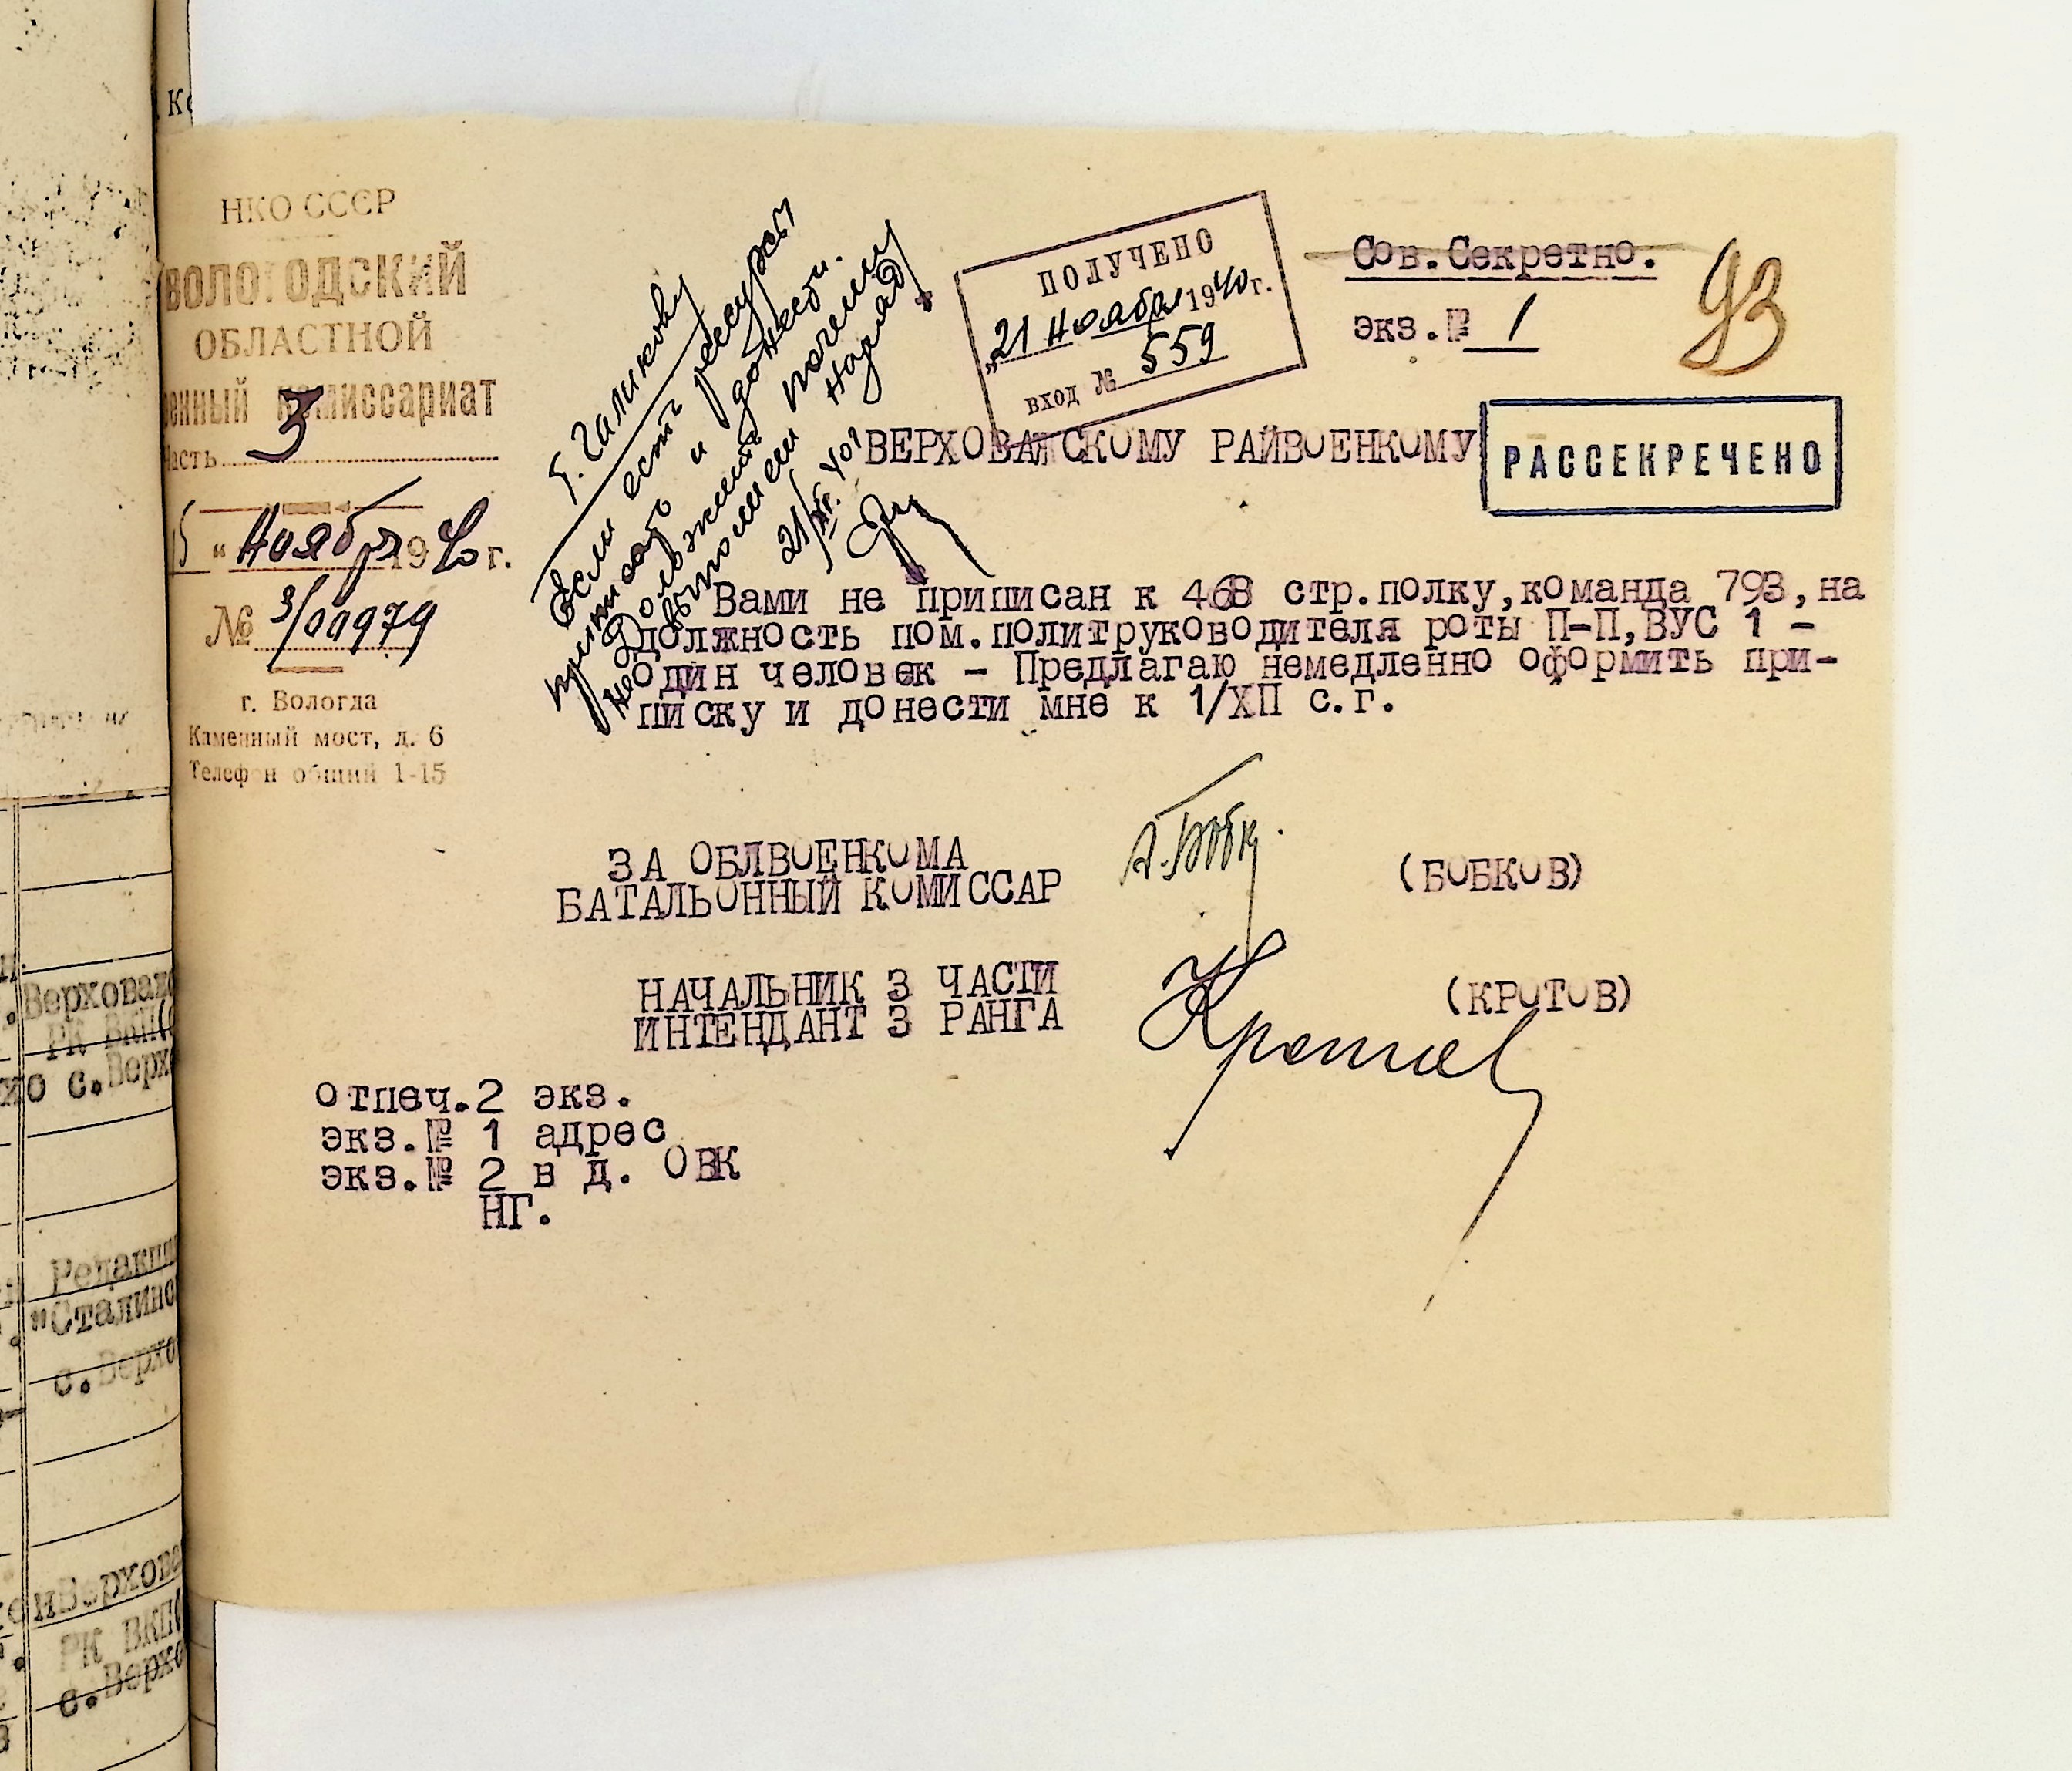 НКО СССР
ВОЛОГОДСКИЙ
ОБЛАСТНОЙ
енный комиссариат
Часть 3
15 " Ноября 1940 г.
№ 3/00979
г. Вологда
Каменный мост, д. 6
Телефон общий 1-15
Т. Галикову
Если есть рессурсы
приписать и донести.
Должны
выполнен почему
наряд
21/XI. 40г
ПОЛУЧЕНО
„21 Ноября 1940 г.
вход № 559
Сов.Секретно.
экз.№ 1
93
ВЕРХОВАЖСКОМУ РАЙВОЕНКОМУ
РАССЕКРЕЧЕНО
Вами не приписан к 468 стр.полку,команда 793,на
должность пом.политруководителя роты П-П,ВУС 1 -
один человек - Предлагаю немедленно оформить при-
писку и донести мне к 1/ХП с.г.
ЗА ОБЛВОЕНКОМА
БАТАЛЬОННЫЙ КОМИССАР
(БОБКОВ)
НАЧАЛЬНИК 3 ЧАСТИ
ИНТЕНДАНТ 3 РАНГА
Кротов
(КРОТОВ)
отпеч.2 экз.
экз.№ 1 адрес
экз.№ 2 в д. ОВК
НГ.
.Верховаж
РК ВКП(
с.Верхо
Редакции
"Сталинс
с.Верхо
Верхова
РК ВКП(
с.Верхо